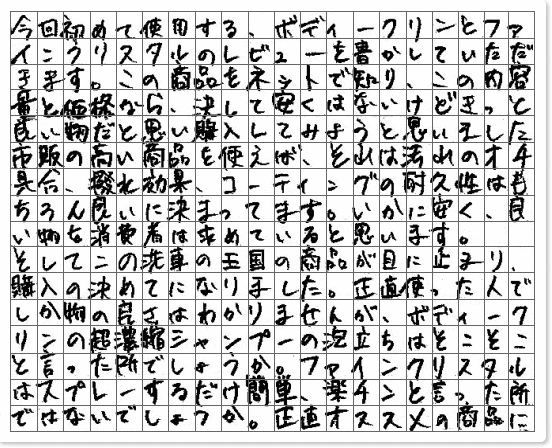 今回初めて使用する、ボディークリンとファ
インクリスタルのレビューを書かしていただ
きます。この商品をネットで知り、この内容
量と価格なら、決して安くはないけどきっと
良い物だと思い購入してみようと思いました
市販の高い商品を使えば、それは汚れのオチ
具合、撥水効果、コーティングの耐久性はも
ちろん良いに決まってます。いかに安く、良
い物を消費者は求めていると思います。
そしてこの洗車の王国の商品が目に止まり、
購入の決めてになりました。正直使った人で
しか物の良さはわかりませんが、ボディーク
リンの超濃縮シャンプーの泡立ちはそこそこ
と言った所でしょうか。ファインクリスタル
はスプレーするだけ簡単、楽チンと言った所
ではないでしょうか。正直オススメの商品に